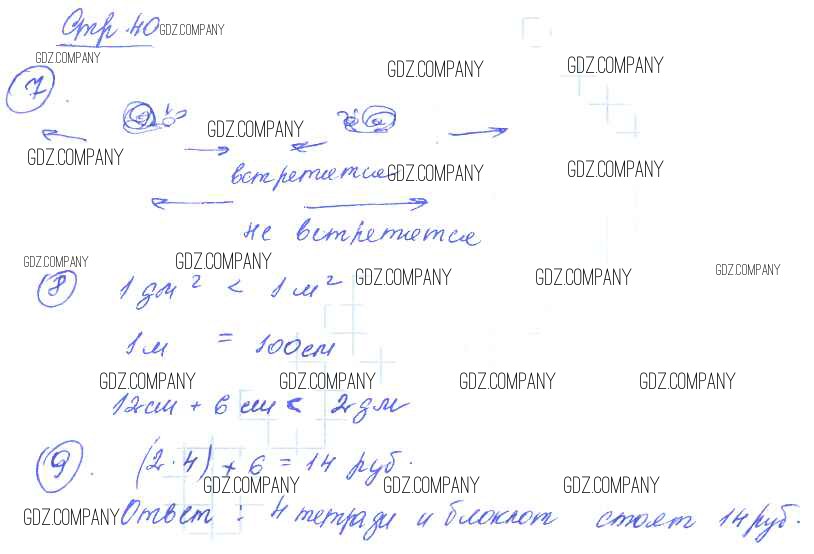 Стр. 40 GDZ.COMPANY
GDZ.COMPANY GDZ.COMPANY GDZ.COMPANY
7.
GDZ.COMPANY GDZ.COMPANY
встретятся GDZ.COMPANY GDZ.COMPANY
не встретятся
GDZ.COMPANY GDZ.COMPANY GDZ.COMPANY GDZ.COMPANY GDZ.COMPANY
8 1 дм² < 1 м²
1м = 100см
GDZ.COMPANY GDZ.COMPANY GDZ.COMPANY GDZ.COMPANY
12см + 6 см < 2 дм
9. (2·4) + 6 = 14 руб.
GDZ.COMPANY GDZ.COMPANY GDZ.COMPANY
GDZ.COMPANY Ответ: 4 тетради и блокнот стоят 14 руб.